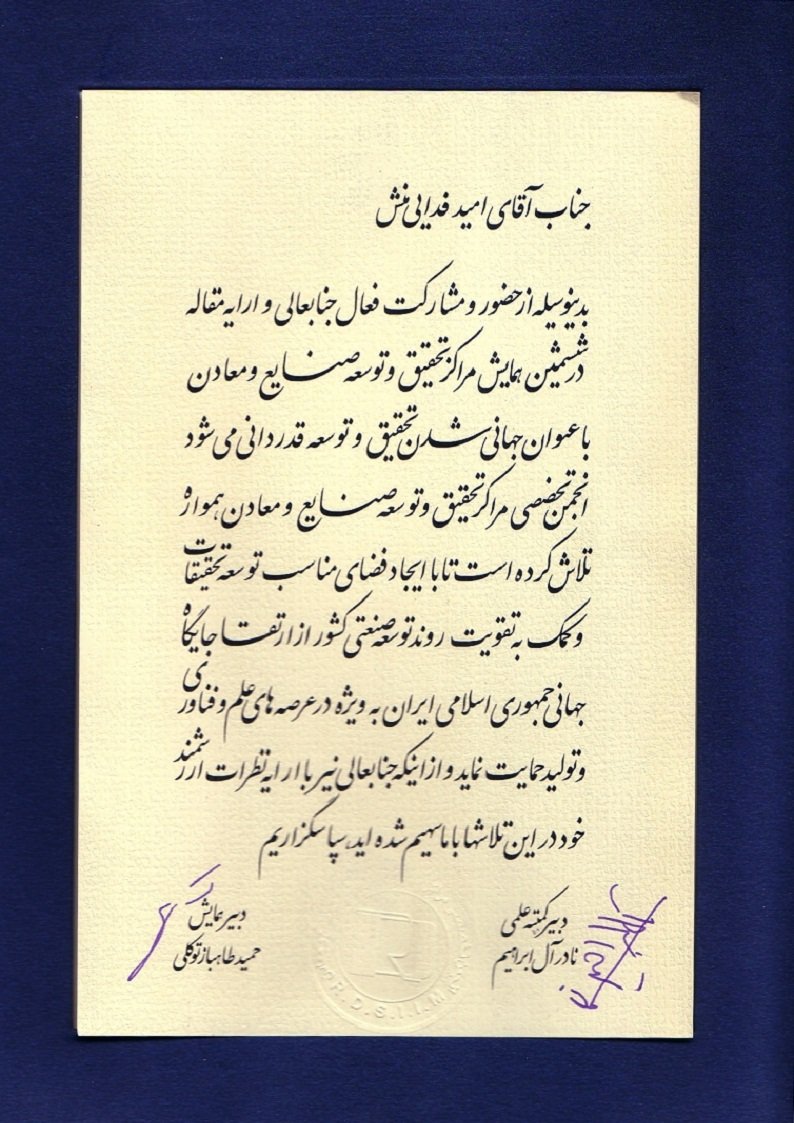 جناب آقای امید فدایی منش
بدینوسیله از حضور و مشارکت فعال جنابعالی و ارایه مقاله
در ششمین همایش مراکز تحقیق و توسعه صنایع و معادن
با عنوان جهانی شدن تحقیق و توسعه قدردانی می شود
انجمن تخصصی مراکز تحقیق و توسعه صنایع و معادن همواره
تلاش کرده است تا با ایجاد فضای مناسب توسعه تحقیقات
و کمک به تقویت روند توسعه صنعتی کشور از ارتقا جایگاه
جهانی جمهوری اسلامی ایران به ویژه در عرصه های علم و فناوری
و تولید حمایت نماید و از اینکه جنابعالی نیز با ارایه نظرات ارزشمند
خود در این تلاشها با ما سهیم شده اید، سپاسگزاریم
دبیر کمیته علمی
نادر آل ابراهیم
دبیر همایش
حمید طاهباز توکلی
R.D.S.I.I.M